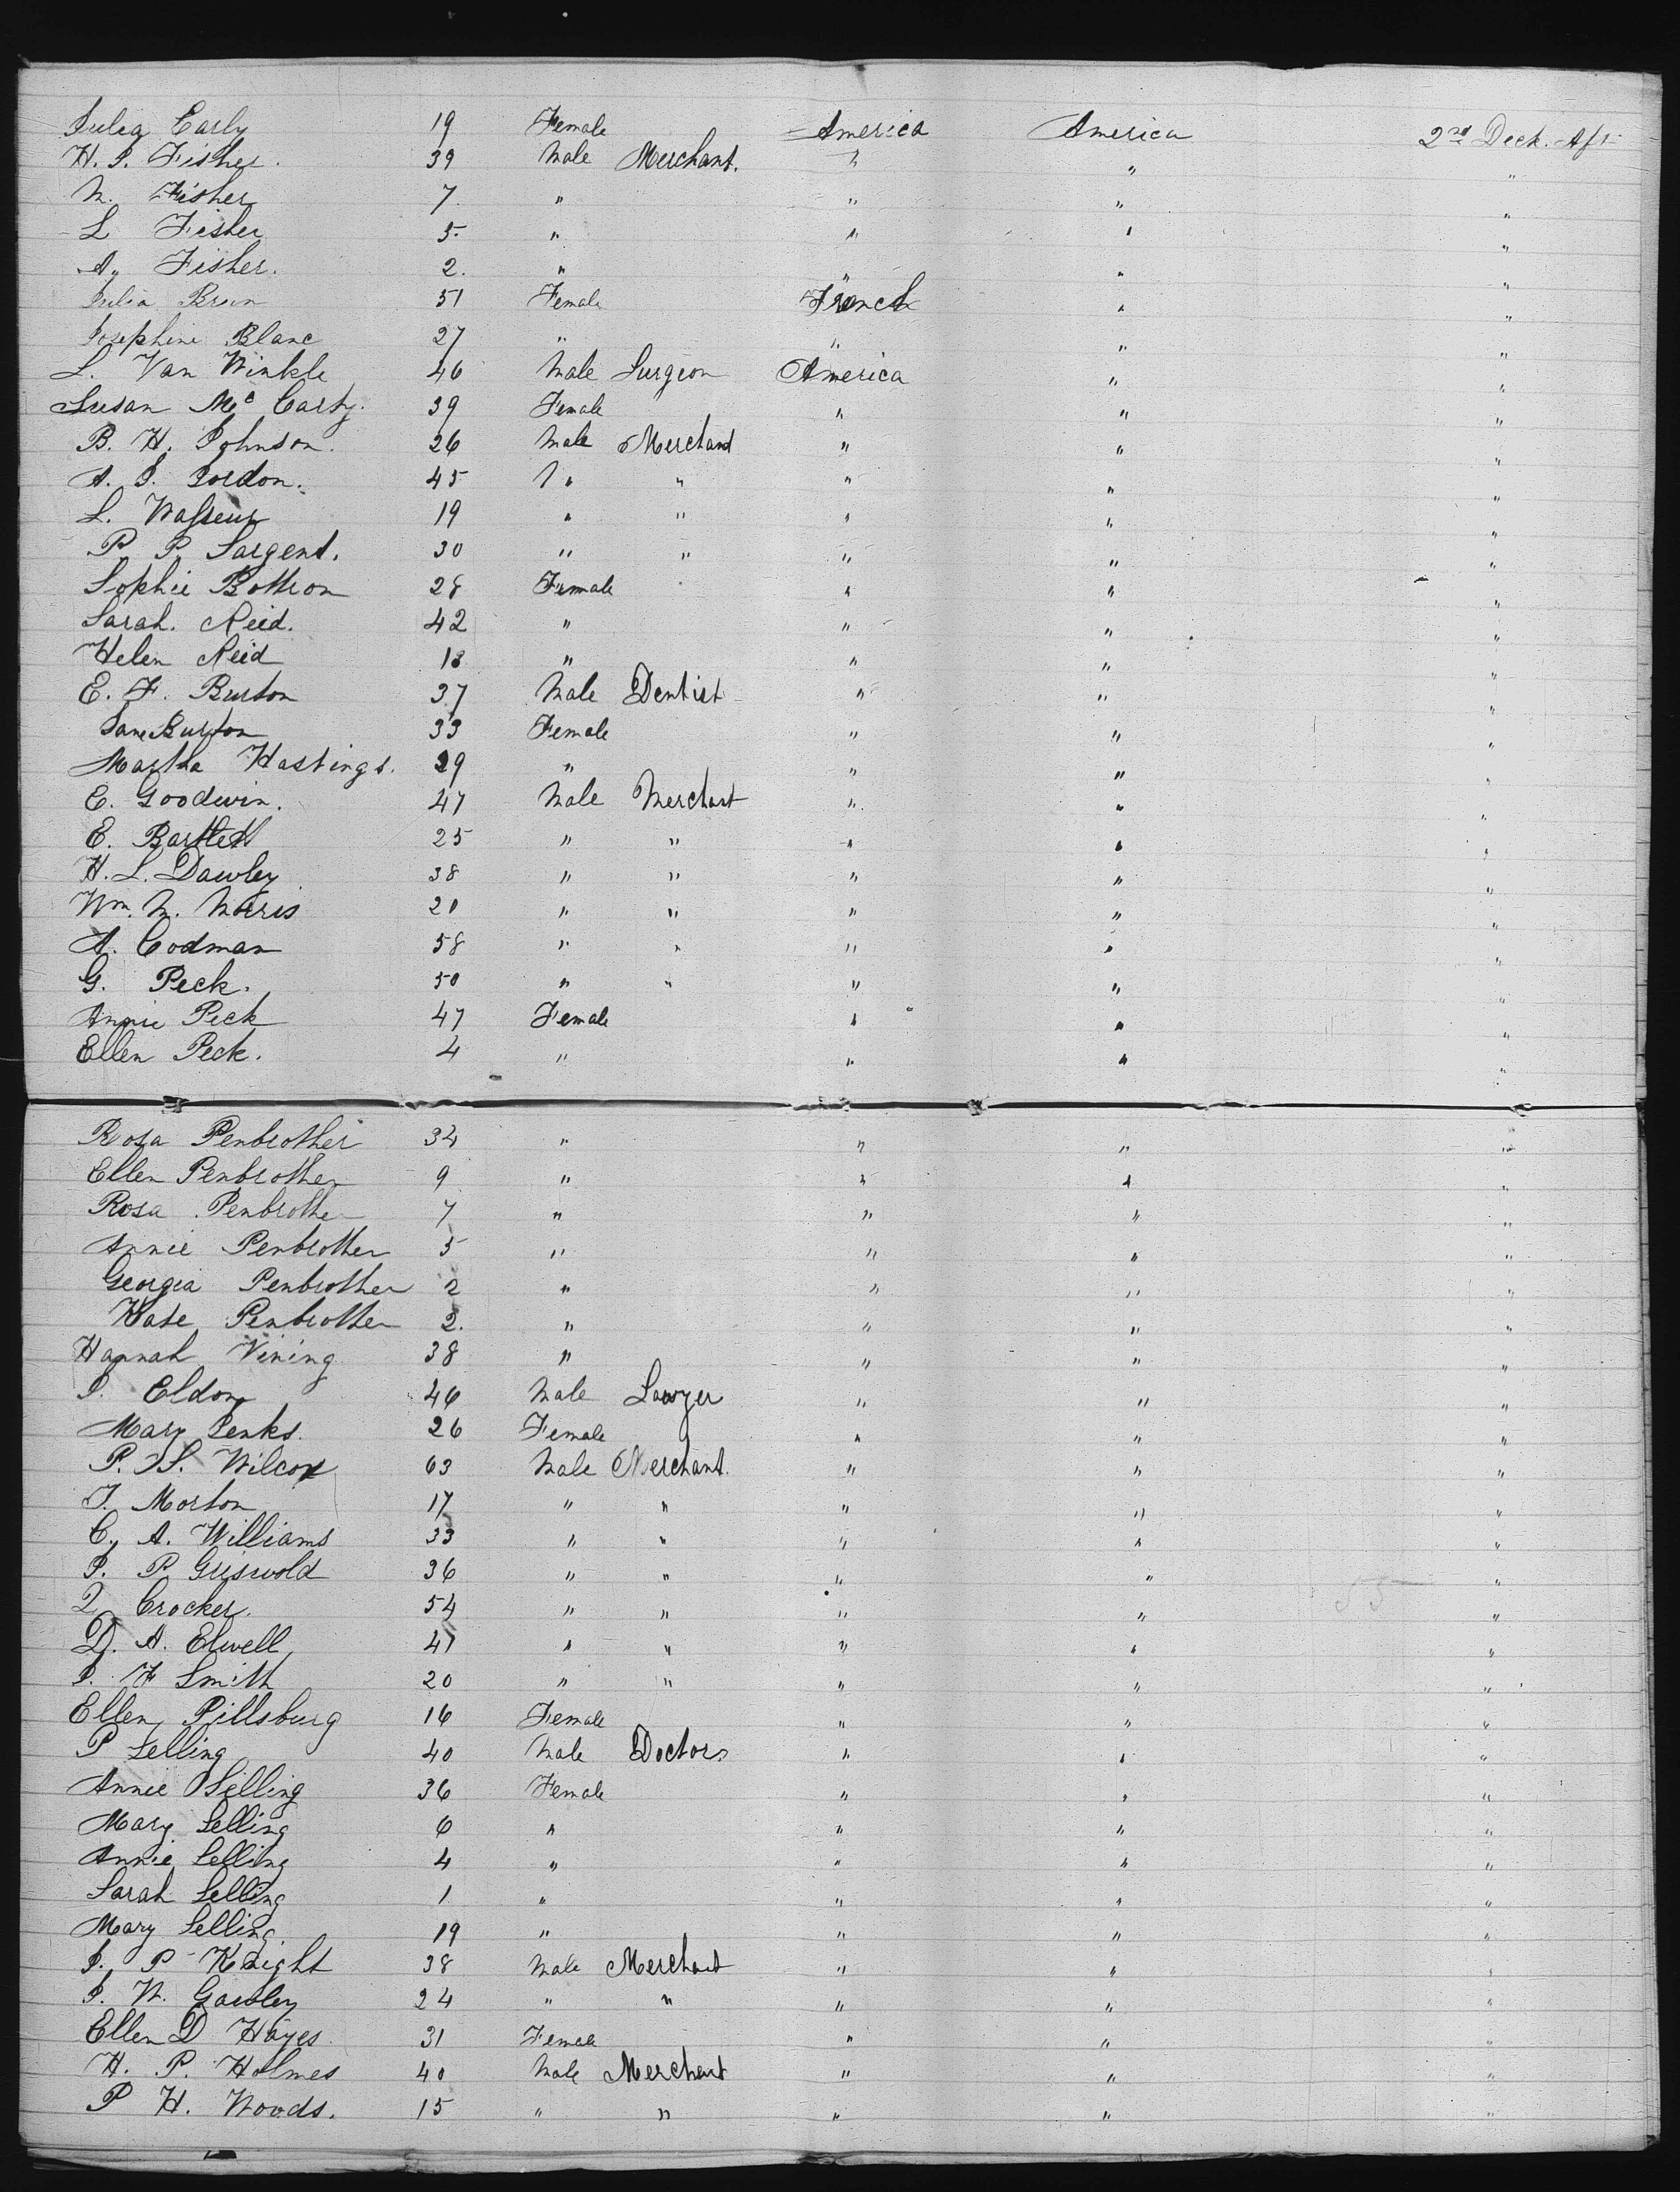 Julia Early 19 Female America America 2nd Deck. Aft
H. J. Fisher. 39 Male Merchant. " " "
M. Fisher 7. " " " "
L Fisher 5. " " " "
A. Fisher. 2. " " " "
Julia Brun 51 Female French " "
Josephine Blanc 27 " " " "
L. Van Winkle 46 Male Surgeon America " "
Susan Mc Carty. 39 Female " " "
B. H. Johnson. 26 Male Merchant " " "
A. J. Gordon. 45 " " " " "
L. Wasseur 19 " " " " "
P. P. Sargent. 30 " " " " "
Sophie Bothron 28 Female " " "
Sarah. Reid. 42 " " " "
Helen Reid 18 " " " "
E. F. Burton 37 Male Dentist " " "
Jane Burton 33 Female " " "
Martha Hastings. 29 " " " "
E. Goodwin. 47 Male Merchant " " "
E. Bartlett 25 " " " " "
H. L. Dawley 38 " " " " "
Wm. N. Norris 20 " " " " "
A. Codman 58 " " " " "
G. Peck. 50 " " " " "
Annie Peck 47 Female " " "
Ellen Peck. 4 " " " "
Rosa Penbrother 34 " " " "
Ellen Penbrother 9 " " " "
Rosa Penbrother 7 " " " "
Annie Penbrother 5 " " " "
Georgia Penbrother 2 " " " "
Kate Penbrother 2. " " " "
Hannah Vining 38 " " " "
J. Eldon 46 Male Lawyer " " "
Mary Jenks. 26 Female " " "
P. S. Wilcox 63 Male Merchant. " " "
T. Morton 17 " " " " "
C. A. Williams 33 " " " " "
J. P. Griswold 36 " " " " "
Z Crocker. 54 " " " " "
D. A. Elwell 47 " " " " "
J. F Smith 20 " " " " "
Ellen Pillsburg 16 Female " " "
P Selling 40 Male Doctor " " "
Annie Selling 36 Female " " "
Mary Selling 6 " " " "
Annie Selling 4 " " " "
Sarah Selling 1 " " " "
Mary Selling. 19 " " " "
J. P Knight 38 Male Merchant " " "
J. W. Gawley 24 " " " " "
Ellen D Hayes 31 Female " " "
H. P. Holmes 40 Male Merchant " " "
P H. Woods. 15 " " " " "